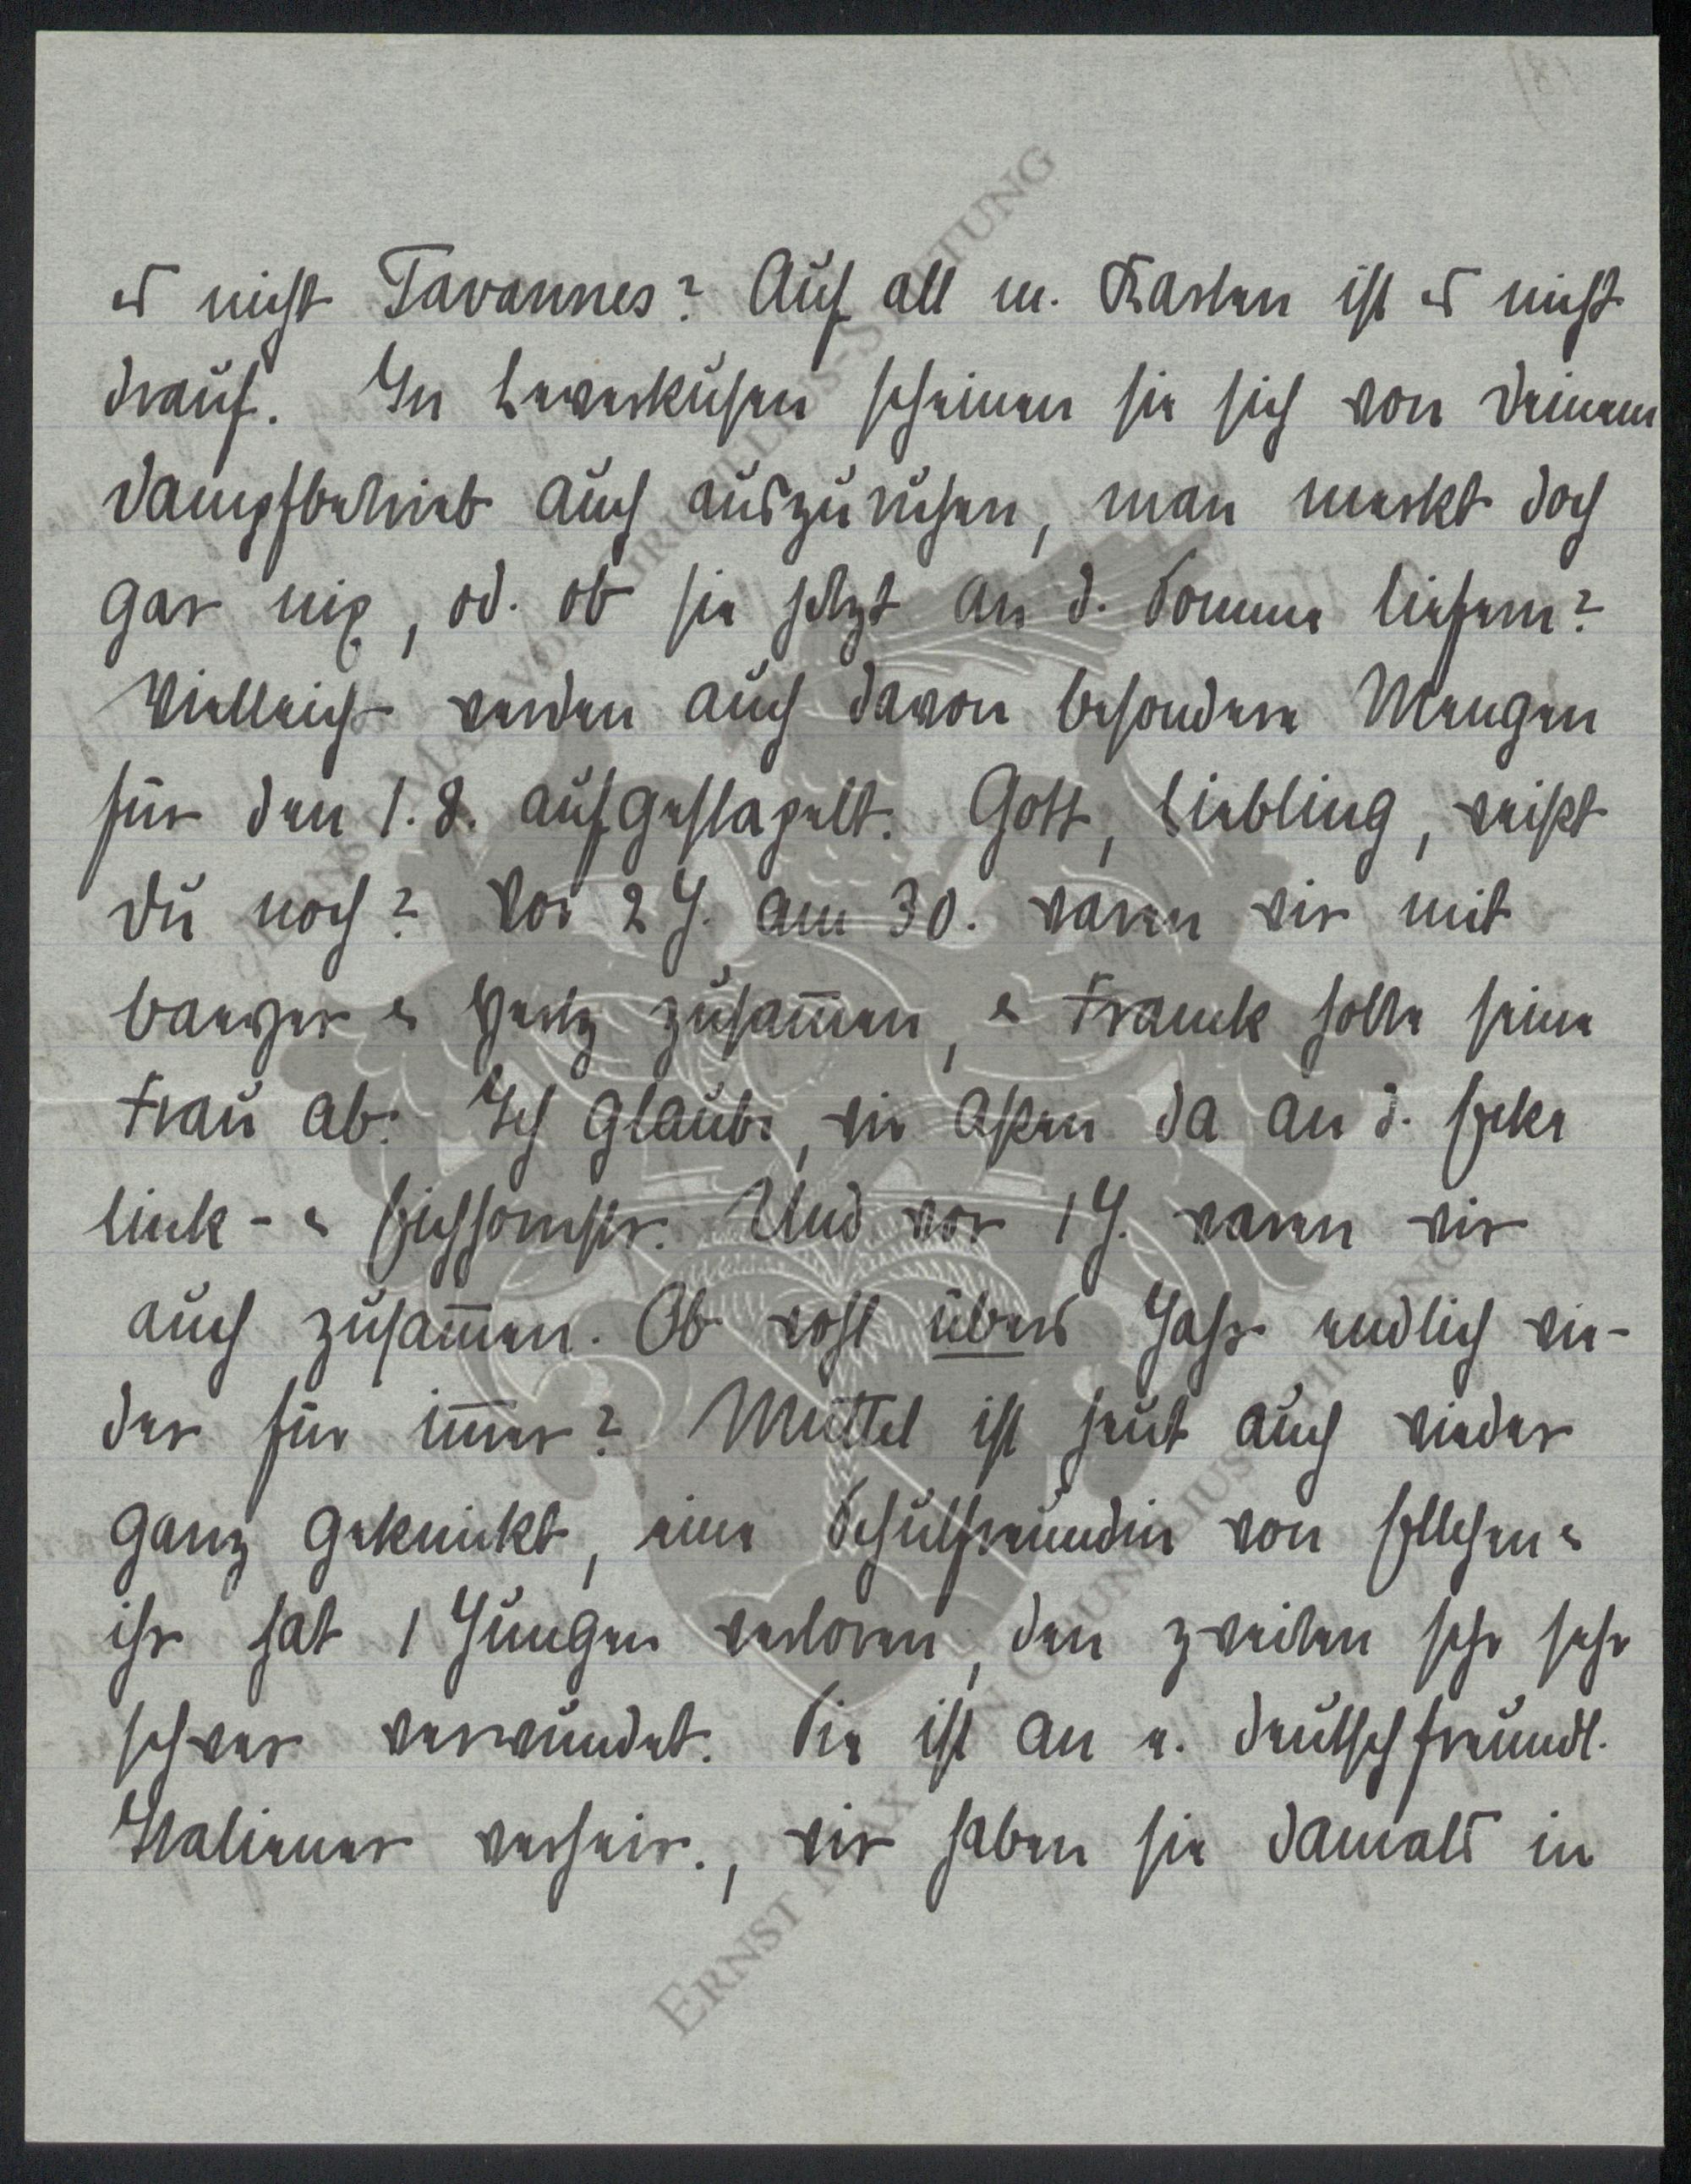 es nicht Tavannes? Auf all m. Karten ist es nicht
drauf. In Leverkusen scheinen sie sich von Deinem
Dampfbetrieb auch auszuruhen, man merkt doch
gar nix, od. ob sie jetzt an d. Somme liefern?
Vielleicht werden auch davon besondere Mengen
für den 1. 8. aufgestapelt. Gott, Liebling, weißt
Du noch? Vor 2 J. am 30. waren wir mit
zusammen, & Franck holte seine
Frau ab. Ich glaube, wir aßen da an d. Ecke
Linck- & Eichhornstr. Und vor 1 J. waren wir
auch zusammen. Ob wohl übers Jahr endlich wie-
der für immer? Muttel ist heut auch wieder
ganz geknickt, eine Schulfreundin von Ellchen &
ihr hat 1 Jungen verloren, den zweiten sehr sehr
schwer verwundet. Sie ist an e. deutschfreundl.
Italiener verheir., wir haben sie damals in
ERNST MAX VON GRUNELIUS-STIFTUNG
ERNST MAX VON GRUNELIUS-STIFTUNG